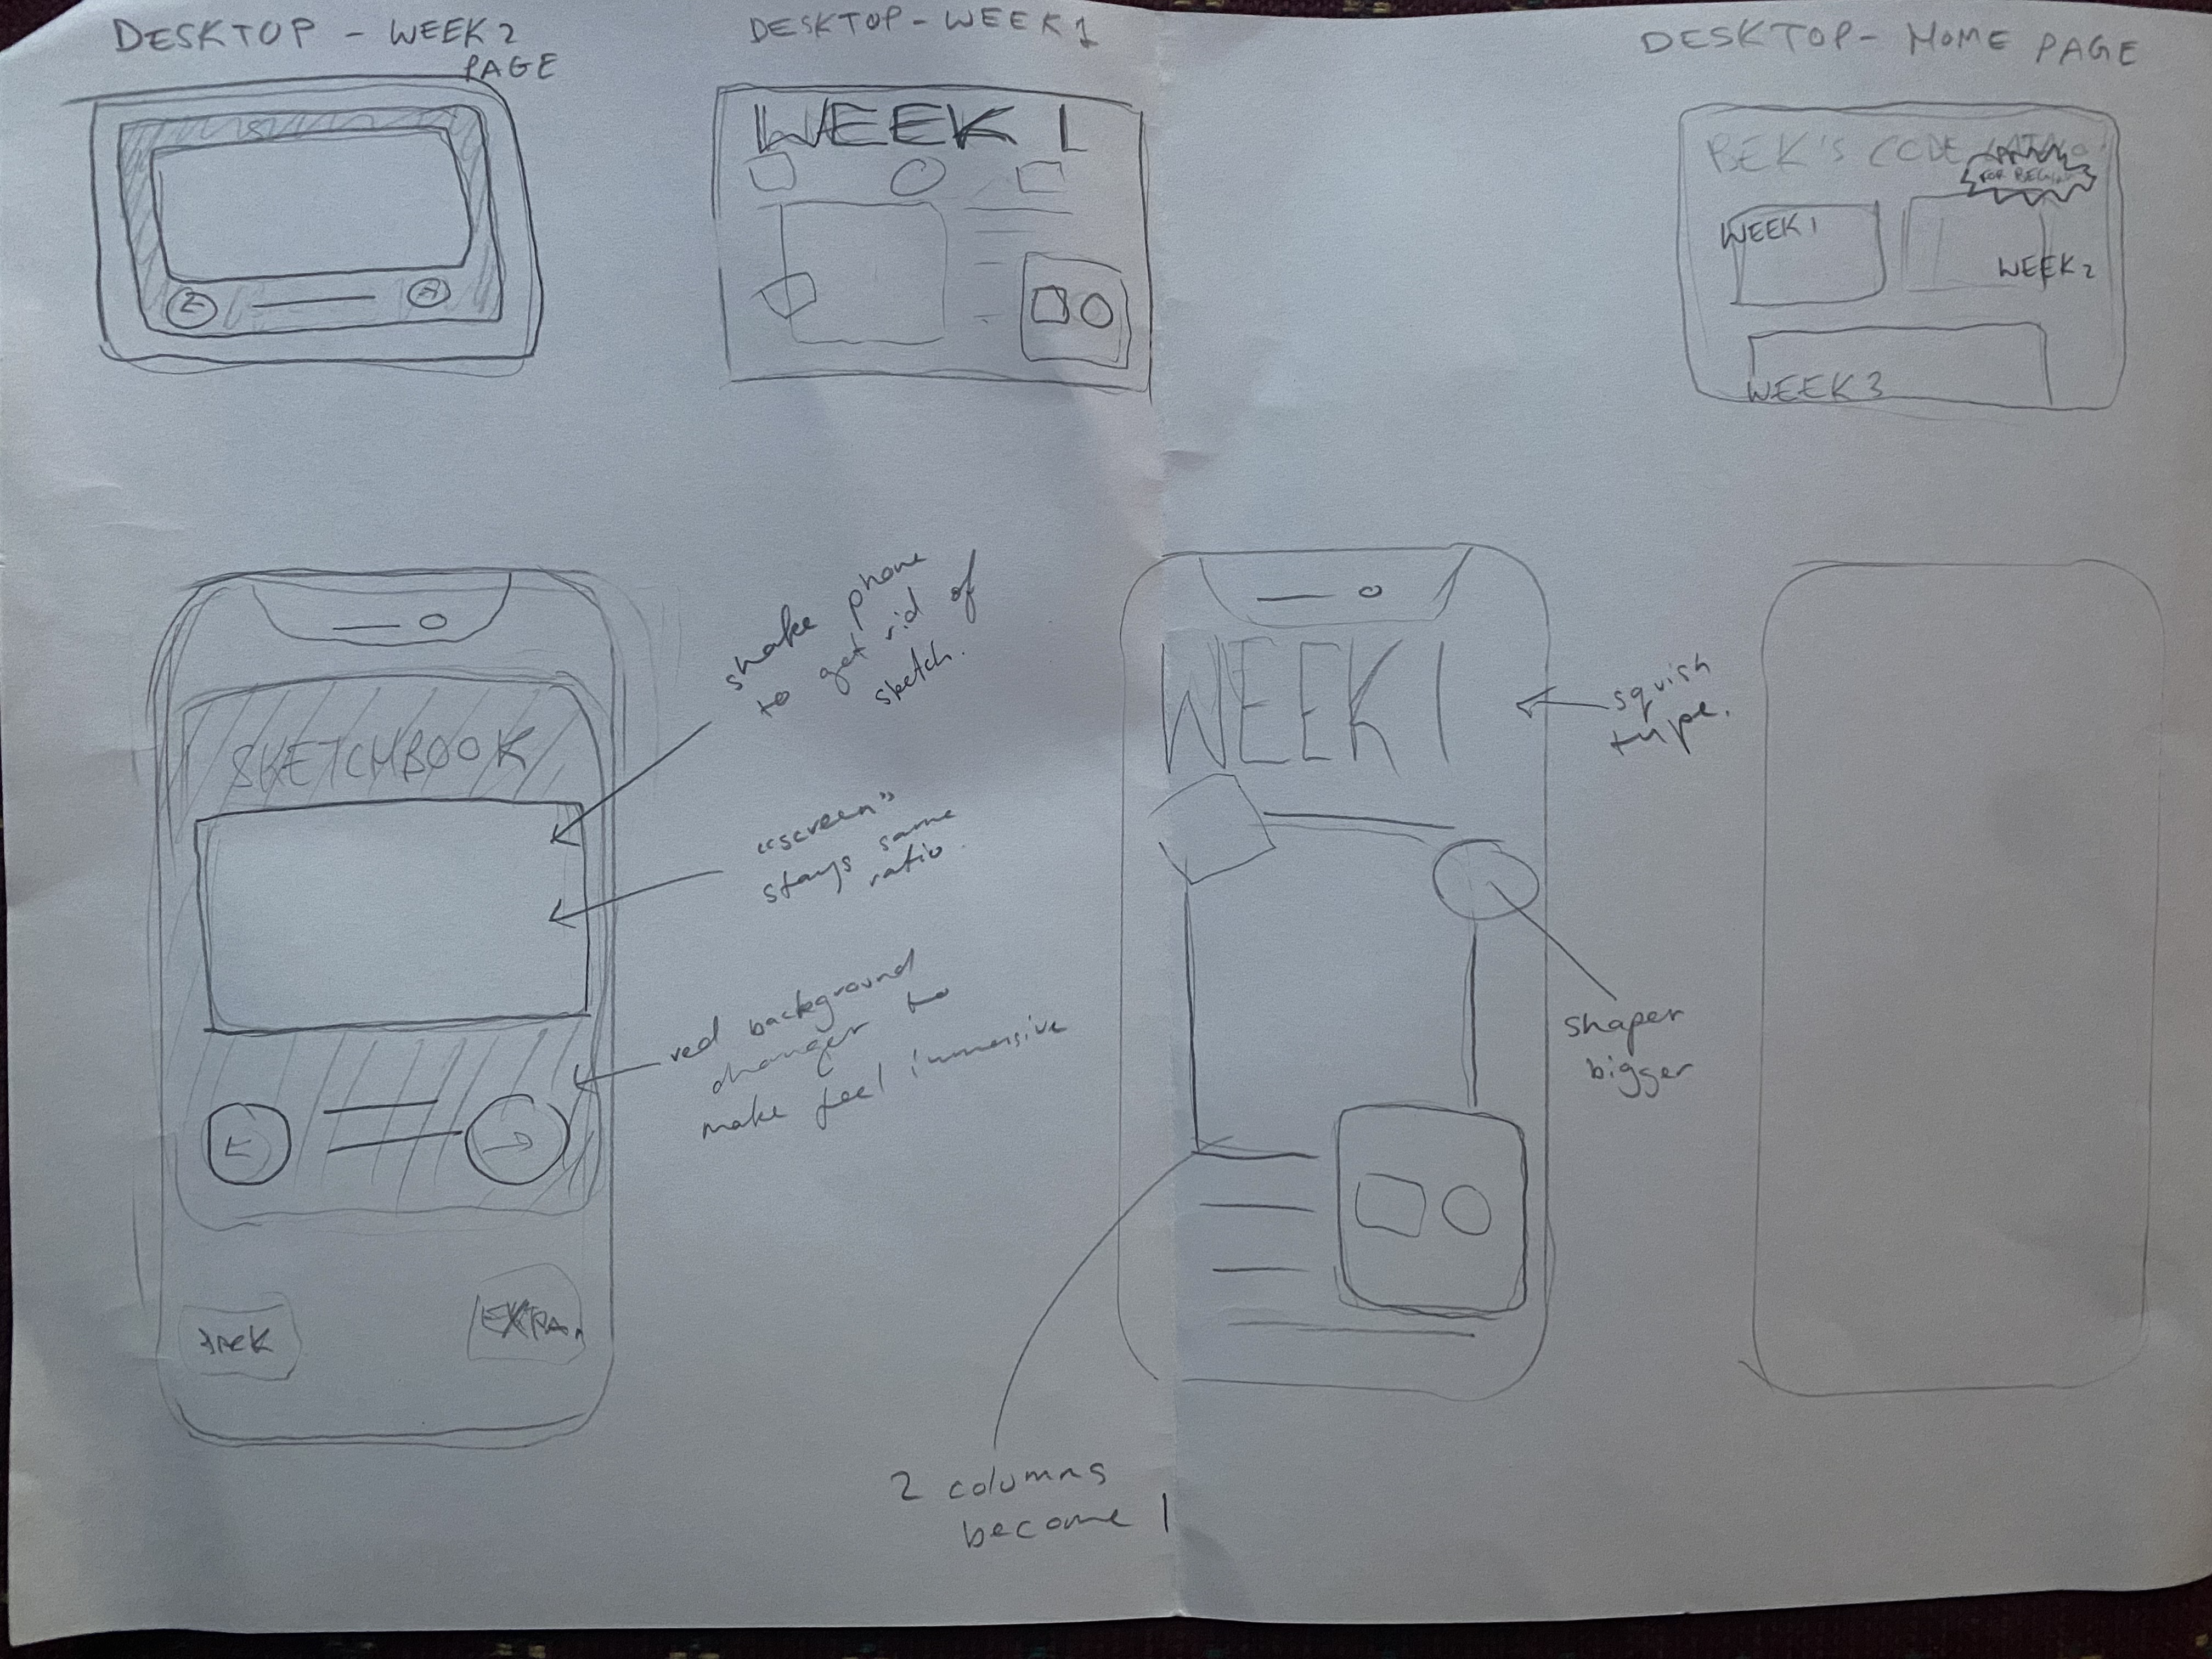 DESKTOP - WEEK 2
PAGE
DESKTOP - WEEK 1
WEEK 1
DESKTOP - HOME PAGE
BEK'S CODE
FOR
WEEK 1
WEEK 2
WEEK 3
SKETCHBOOK
EXTRA
shake phone
to get rid of
sketch.
"screen"
stays same
ratio.
red background
to
make feel immersive
WEEK 1
squish
type.
bigger
2 columns
become 1